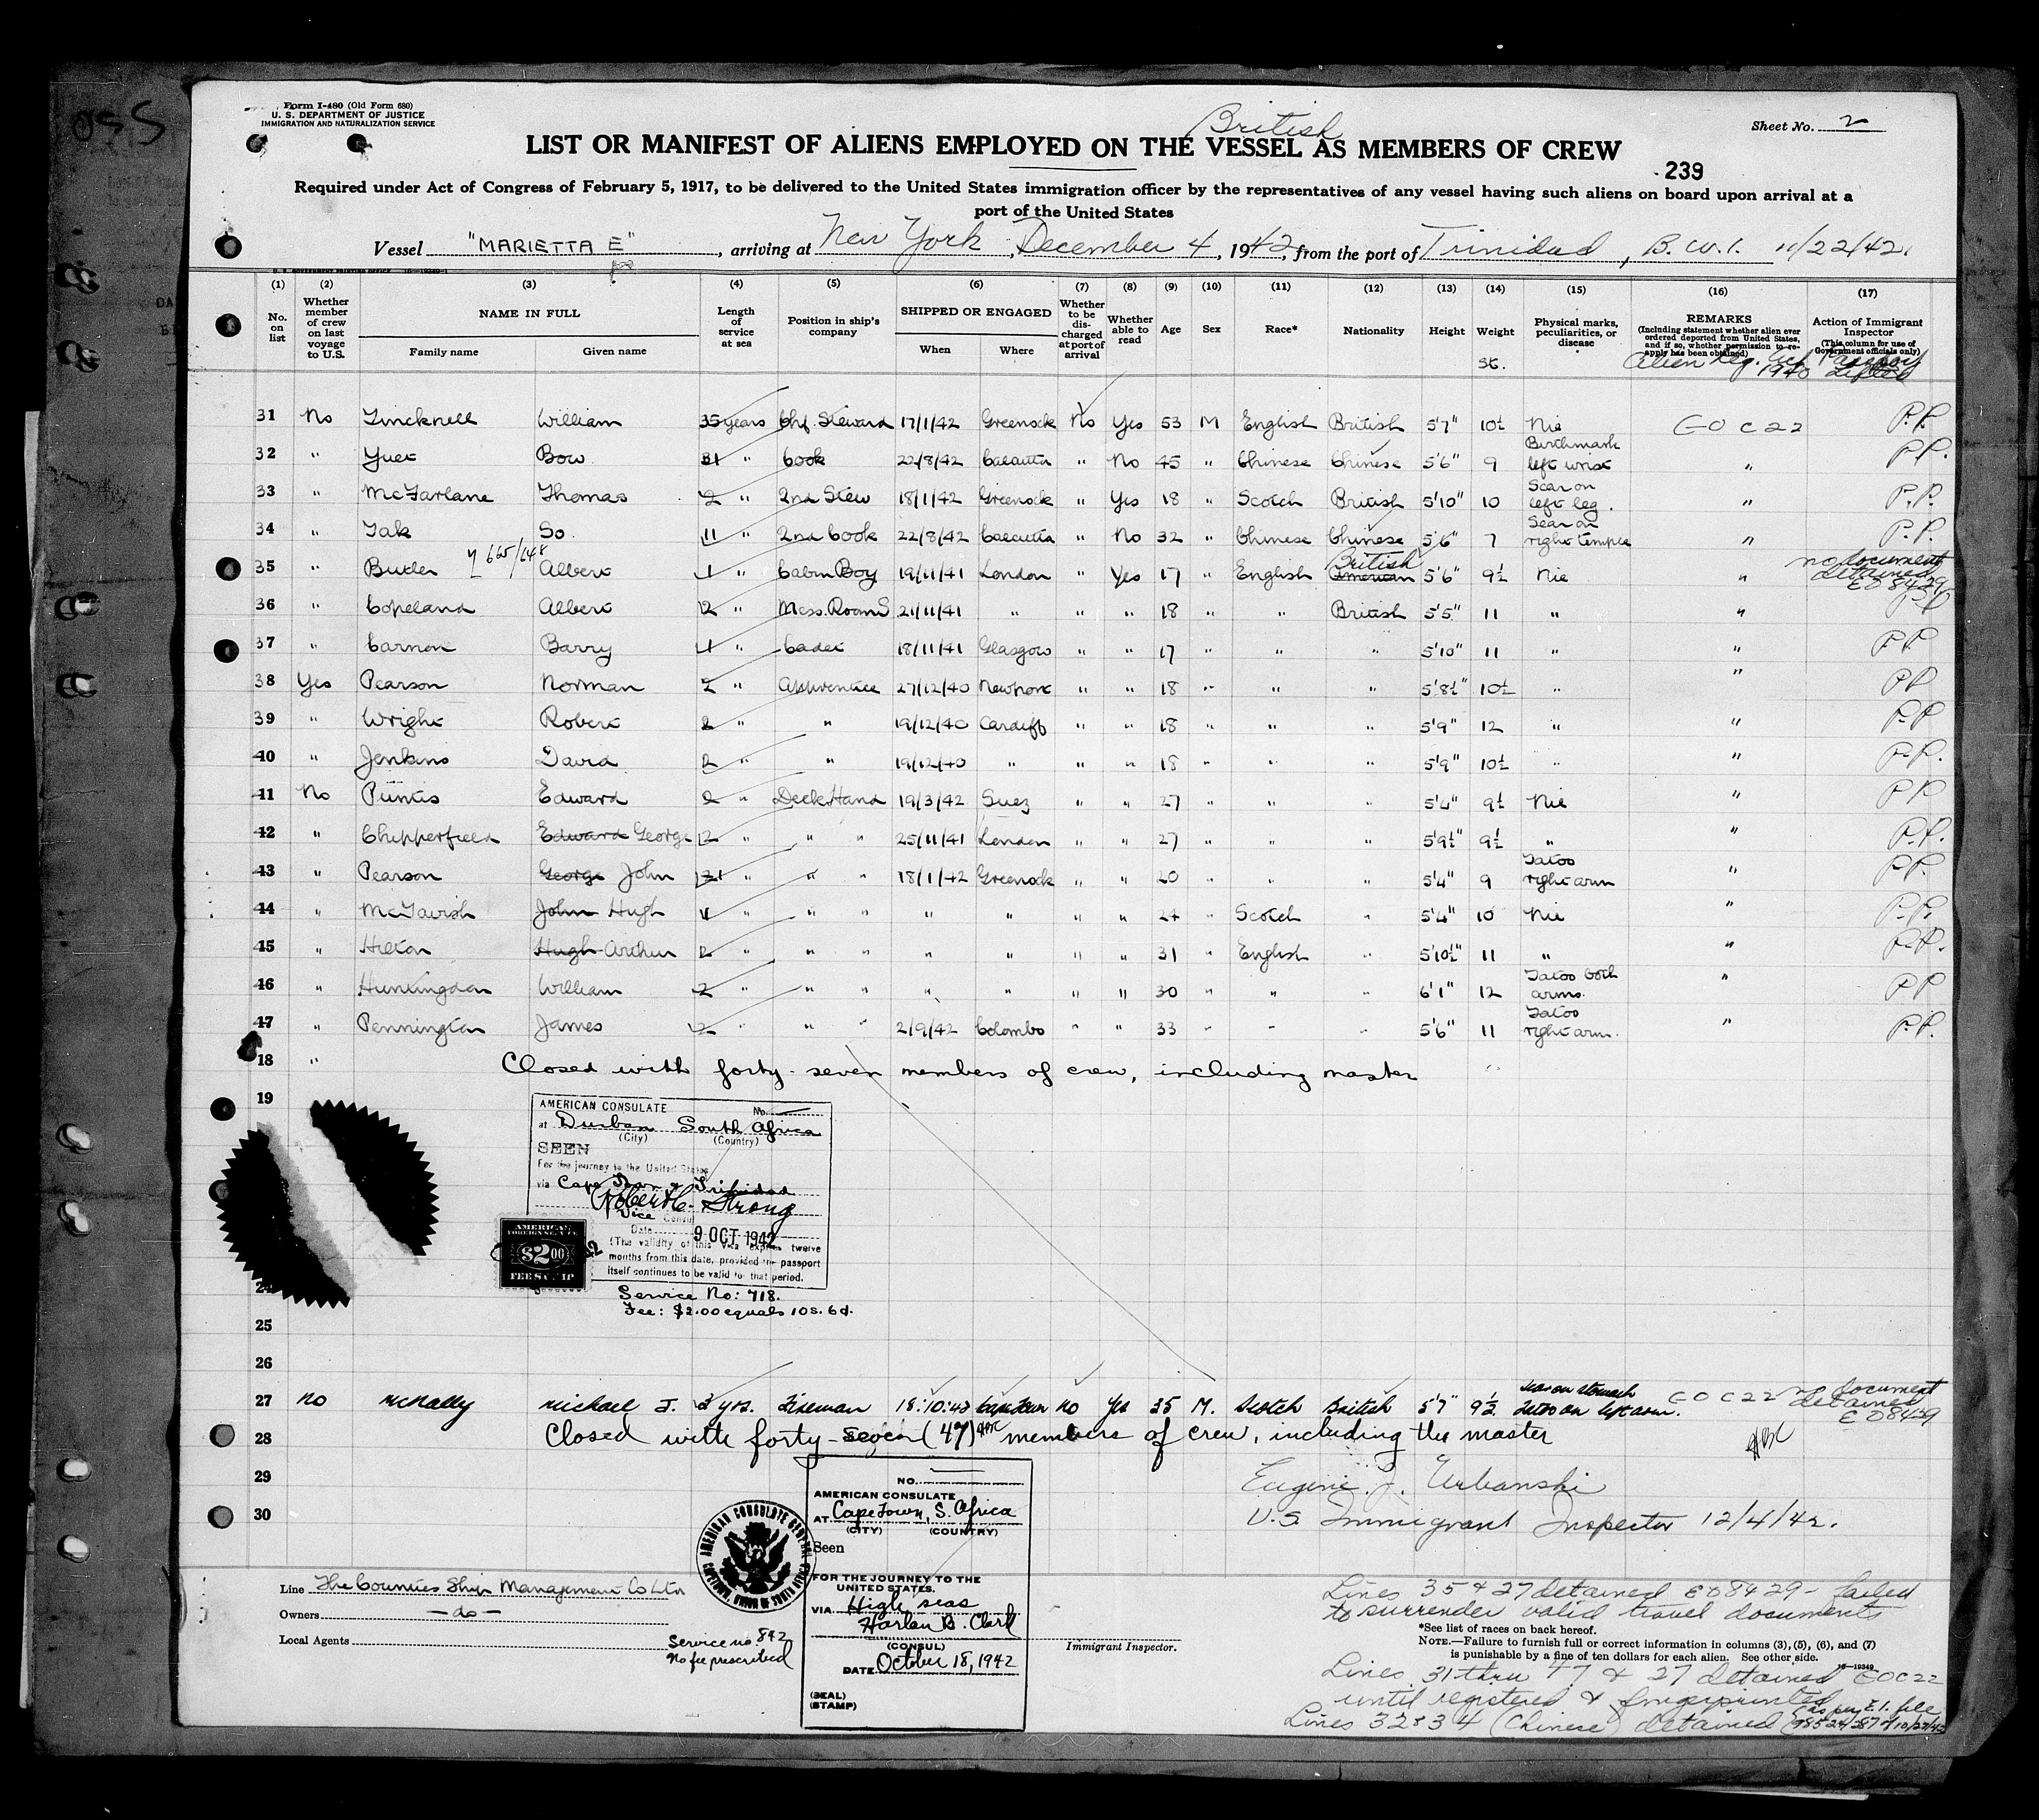 OSS
Form I-480 (Old Form 680)
U. S. DEPARTMENT OF JUSTICE
IMMIGRATION AND NATURALIZATION SERVICE
British
Sheet No. 2
LIST OR MANIFEST OF ALIENS EMPLOYED ON THE VESSEL AS MEMBERS OF CREW
239
Required under Act of Congress of February 5, 1917, to be delivered to the United States immigration officer by the representatives of any vessel having such aliens on board upon arrival at a
port of the United States
Vessel "MARIETTA E", arriving at New York, December 4, 1942, from the port of Trinidad, B.W.I. 11/22/42.
(1) (2) (3) (4) (5) (6) (7) (8) (9) (10) (11) (12) (13) (14) (15) (16) (17)
No. on list
Whether member of crew on last voyage to U.S.
NAME IN FULL
Family name
Given name
Length of service at sea
Position in ship's company
SHIPPED OR ENGAGED
When
Where
Whether to be discharged at port of arrival
Whether able to read
Age
Sex
Race*
Nationality
Height
Weight
St.
Physical marks, peculiarities, or disease
REMARKS
(Including statement whether alien ever ordered deported from United States, and if so, whether permission to re-apply has been obtained)
Alien Reg. Act 1940
Action of Immigrant Inspector
(This column for use of Government officials only)
Passport Lifted
31 No Tincknell William 35 years Chf. Steward 17/1/42 Greenock No Yes 53 M English British 5'7" 10½ Nil EO C22 P.P.
32 " Yuet Bow 31 " Cook 22/8/42 Calcutta " No 45 " Chinese Chinese 5'6" 9 Birthmark left wrist " P.P.
33 " McFarlane Thomas 2 " 2nd Stew 18/1/42 Greenock " Yes 18 " Scotch British 5'10" 10 Scar on left leg. " P.P.
34 " Tak So 11 " 2nd Cook 22/8/42 Calcutta " No 32 " Chinese Chinese 5'6" 7 Scar on right temple " P.P.
35 " Butler Albert 1 " Cabin Boy 19/11/41 London " Yes 17 " English American British 5'6" 9½ Nil " no document detained EO 8429
36 " Copeland Albert 2 " Mess. Room S 21/11/41 " " " 18 " " British 5'5" 11 " " P.P.
37 " Carnon Barry 1 " Cadet 18/11/41 Glasgow " " 17 " " " 5'10" 11 " " P.P.
38 Yes Pearson Norman 2 " Apprentice 27/12/40 Newport " " 18 " " " 5'8½" 10½ " " P.P.
39 " Wright Robert 2 " " 19/12/40 Cardiff " " 18 " " " 5'9" 12 " " P.P.
40 " Jenkins David 2 " " 19/12/40 " " " 18 " " " 5'9" 10½ " " P.P.
41 No Puntis Edward 2 " Deck Hand 19/3/42 Suez " " 27 " " " 5'4" 9½ Nil " P.P.
42 " Chipperfield Edward George 2 " " " 25/11/41 London " " 27 " " " 5'9½" 9½ " " P.P.
43 " Pearson George John " " " 18/1/42 Greenock " " 20 " " " 5'4" 9 Tatoo right arm " P.P.
44 " McTavish John Hugh " " " " " " " 24 " Scotch " 5'4" 10 Nil " P.P.
45 " Hilton Hugh Arthur 2 " " " " " " " 31 " English " 5'10½" 11 " " P.P.
46 " Huntingdon William 2 " " " " " " " 30 " " " 6'1" 12 Tatoo both arms. " P.P.
47 " Pennington James 2 " " " 2/9/42 Colombo " " 33 " " " 5'6" 11 Tatoo right arm. " P.P.
18 "
Closed with forty-seven members of crew, including master
19
AMERICAN CONSULATE No.
at Durban South Africa
(City) (Country)
SEEN
For the journey to the United States
via Cape Town & Trinidad
Robert C. Strong
Vice Consul
Date 9 OCT 1942
(The validity of this visa expires twelve
months from this date, provided the passport
itself continues to be valid for that period.
AMERICAN
FOREIGN SERVICE
$2.00
FEE STAMP
Service No: 718.
Fee: $2.00 equals 10s. 6d.
24
25
26
27 no McNally Michael J. 3 yrs. Fireman 18:10:42 Cape Town no Yes 35 M. Scotch British 5'7 9½ Scar on stomach Tatoo on left arm. EO C22 no document detained EO 8429
28 Closed with forty-seven (47) HBC members of crew, including the master
HBC
29
Eugene J. Urbanski
30
U.S. Immigrant Inspector 12/4/42.
NO.
AMERICAN CONSULATE
AT Cape Town, S. Africa
(CITY) (COUNTRY)
Seen
FOR THE JOURNEY TO THE
UNITED STATES.
VIA High seas
Harlan B. Clark
(CONSUL)
DATE October 18, 1942
(SEAL)
(STAMP)
AMERICAN CONSULATE GENERAL
CAPETOWN, UNION OF SOUTH AFRICA
Line The Counties Ship Management Co Ltd
Owners -do-
Local Agents
Service no. 842
No fee prescribed
Immigrant Inspector.
Lines 35 & 27 detained EO 8429 - failed
to surrender valid travel documents
*See list of races on back hereof.
NOTE.—Failure to furnish full or correct information in columns (3), (5), (6), and (7)
is punishable by a fine of ten dollars for each alien. See other side.
16-19349
Lines 31 thru 47 & 27 detained EO C22
until registered & fingerprinted
Lines 32 & 34 (Chinese) detained
as per E.I. file